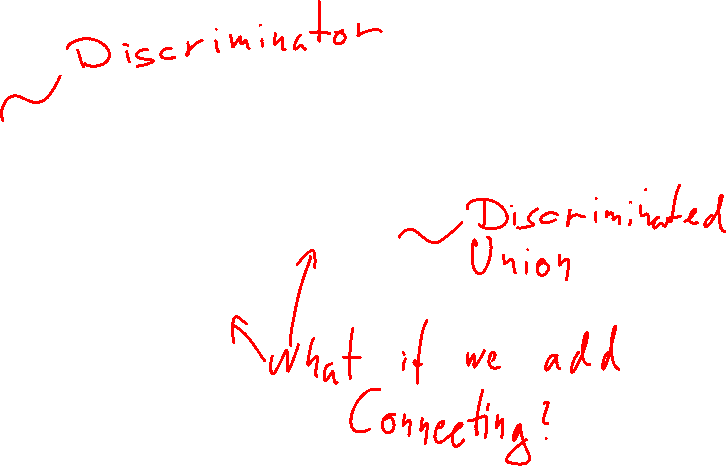 Discriminator
Discriminated
Union
What if we add
Connecting?